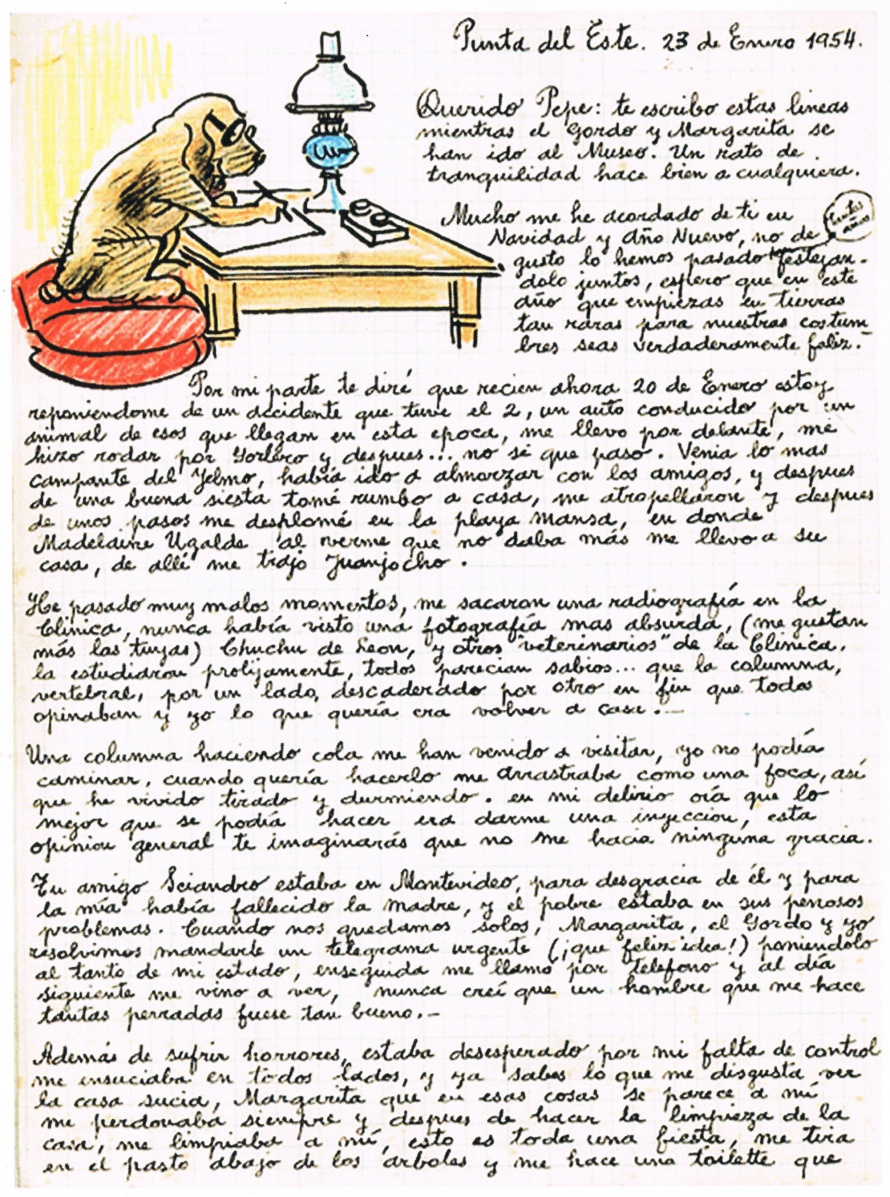 Punta del Este. 23 de Enero 1954.
Querido Pepe: te escribo estas lineas
mientras el Gordo y Margarita se
han ido al Museo. Un rato de
tranquilidad hace bien a cualquiera.
Mucho me he acordado de ti en
Navidad y Año Nuevo, no de
gusto lo hemos pasado tantos años festejan-
dolo juntos, espero que en este
año que empiezas en tierras
tan raras para nuestras costum-
bres seas verdaderamente feliz.-
Por mi parte te diré que recien ahora 20 de Enero estoy
reponiendome de un accidente que tuve el 2, un auto conducido por un
animal de esos que llegan en esta epoca, me llevo por delante, me
hizo rodar por Gorlero y despues... no sé que paso. Venia lo mas
campante del Yelmo, había ido a almorzar con los amigos, y despues
de una buena siesta tomé rumbo a casa, me atropellaron y despues
de unos pasos me desplomé en la playa mansa, en donde
Madelaine Ugalde al verme que no daba más me llevo a su
casa, de allí me trajo Juanjocho.
He pasado muy malos momentos, me sacaron una radiografía en la
Clinica, nunca había visto una fotografía mas absurda, (me gustan
más las tuyas) Chuchu de Leon, y otros "veterinarios" de la Clinica.
la estudiaron prolijamente, todos parecian sabios... que la columna,
vertebral, por un lado, descaderado por otro en fin que todos
opinaban y yo lo que quería era volver a casa.-
Una columna haciendo cola me han venido a visitar, yo no podía
caminar, cuando quería hacerlo me arrastraba como una foca, así
que he vivido tirado y durmiendo. en mi delirio oía que lo
mejor que se podía hacer era darme una inyeccion, esta
opinion general te imaginarás que no me hacia ninguna gracia.
Tu amigo Sciandro estaba en Montevideo, para desgracia de él y para
la mía había fallecido la madre, y el pobre estaba en sus penosos
problemas. Cuando nos quedamos solos, Margarita, el Gordo y yo
resolvimos mandarle un telegrama urgente (¡que feliz idea!) poniendolo
al tanto de mi estado, enseguida me llamó por telefono y al día
siguiente me vino a ver, nunca creí que un hombre que me hace
tantas perradas fuese tan bueno.-
Además de sufrir horrores, estaba desesperado por mi falta de control
me ensuciaba en todos lados, y ya sabes lo que me disgusta ver
la casa sucia, Margarita que en esas cosas se parece a mí
me perdonaba siempre y despues de hacer la limpieza de la
casa, me limpiaba a mí, esto es toda una fiesta, me tira
en el pasto abajo de los árboles y me hace una toilette que